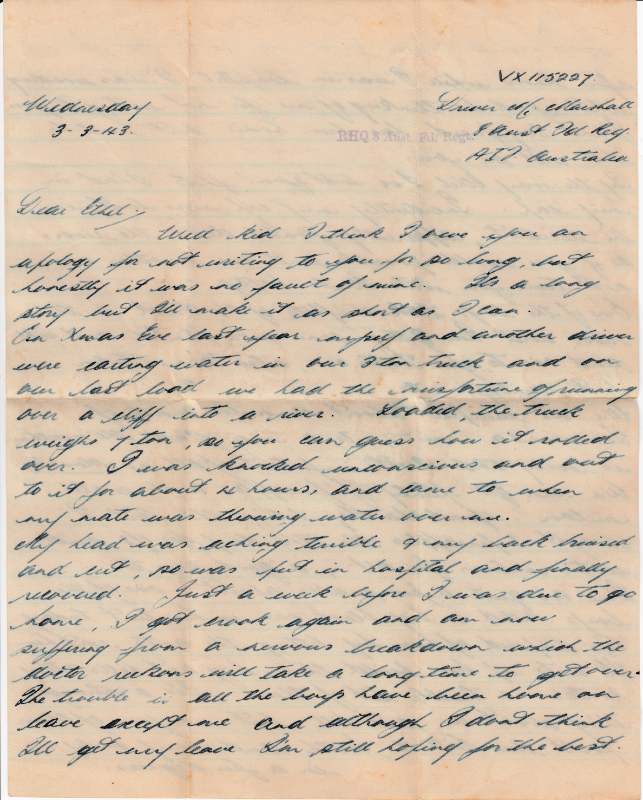 VX115227
Wednesday
3-3-43
Driver M. Marshall
8 Aust Fd Reg.
RHQ 8 Aust. Fd. Regt.
AIF Australia
Dear Ethel,
Well kid I think I owe you an
apology for not writing to you for so long, but
honestly it was no fault of mine. Its a long
story but Ill make it as short as I can.
On Xmas Eve last year myself and another driver
were carting water in our 3 ton truck and on
our last load we had the misfortune of running
over a cliff into a river. Loaded, the truck
weighs 7 ton, so you can guess how it rolled
over. I was knocked unconscious and out
to it for about 2 hours, and came to when
my mate was throwing water over me.
My head was aching terrible & my back bruised
and cut, so was put in hospital and finally
recovered. Just a week before I was due to go
home, I got crook again and am now
suffering from a nervous breakdown which the
doctor reckons will take a long time to get over.
The trouble is all the boys have been home on
leave except me and although I dont think
Ill get my leave Im still hoping for the best.